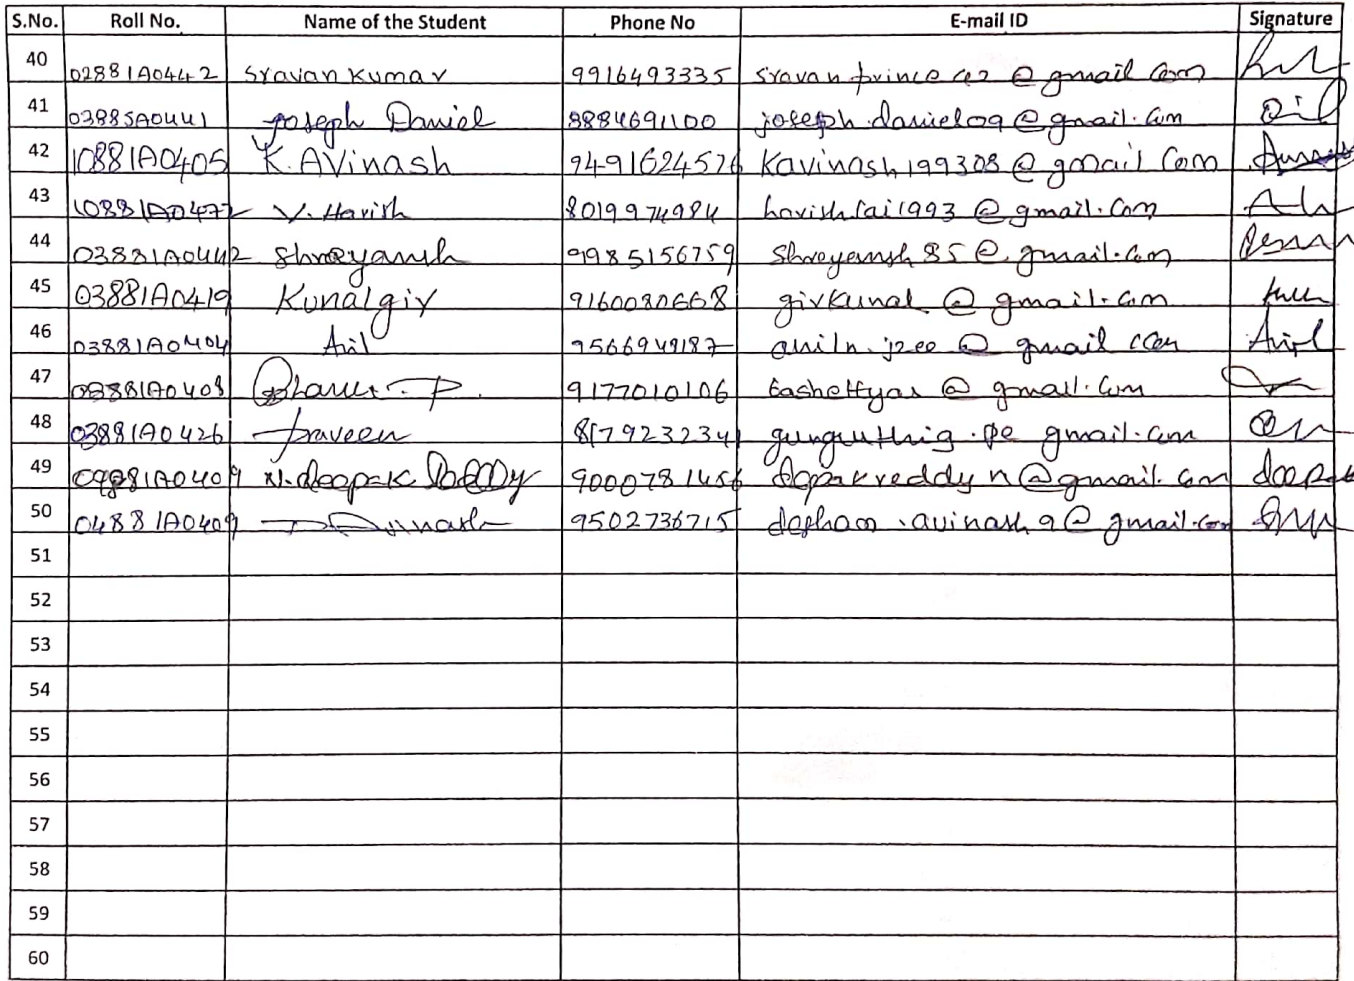 S.No. Roll No. Name of the Student Phone No E-mail ID Signature
40 02881A0442 Sravan Kumar 9916493335 sravan prince 42 @ gmail com
41 03885A0441 Joseph Daniel 8884691100 joseph.daniel09@gmail.com
42 10881A0405 K. AVinash 9491624576 Kavinash199308@gmail Com
43 10881A0472 V. Harish 8019974984 harishsai1993 @gmail.Com
44 03881A0442 Shreyansh 9985156759 Shreyansh 85@gmail.com
45 03881A0419 Kunalgir 9160080668 girkunal @ gmail.com
46 03881A0404 Anil 9566949187 aniln.j2ee @ gmail com
47 03881A0408 9177010106 @ gmail.com
48 03881A0426 Praveen 8179232341 gmail.com
49 04881A0409 N. deepak Reddy 9000781456 depakreddy n@gmail.com deepak
50 04881A0409 Avinash 9502736715 avinash 9@gmail.com
51
52
53
54
55
56
57
58
59
60